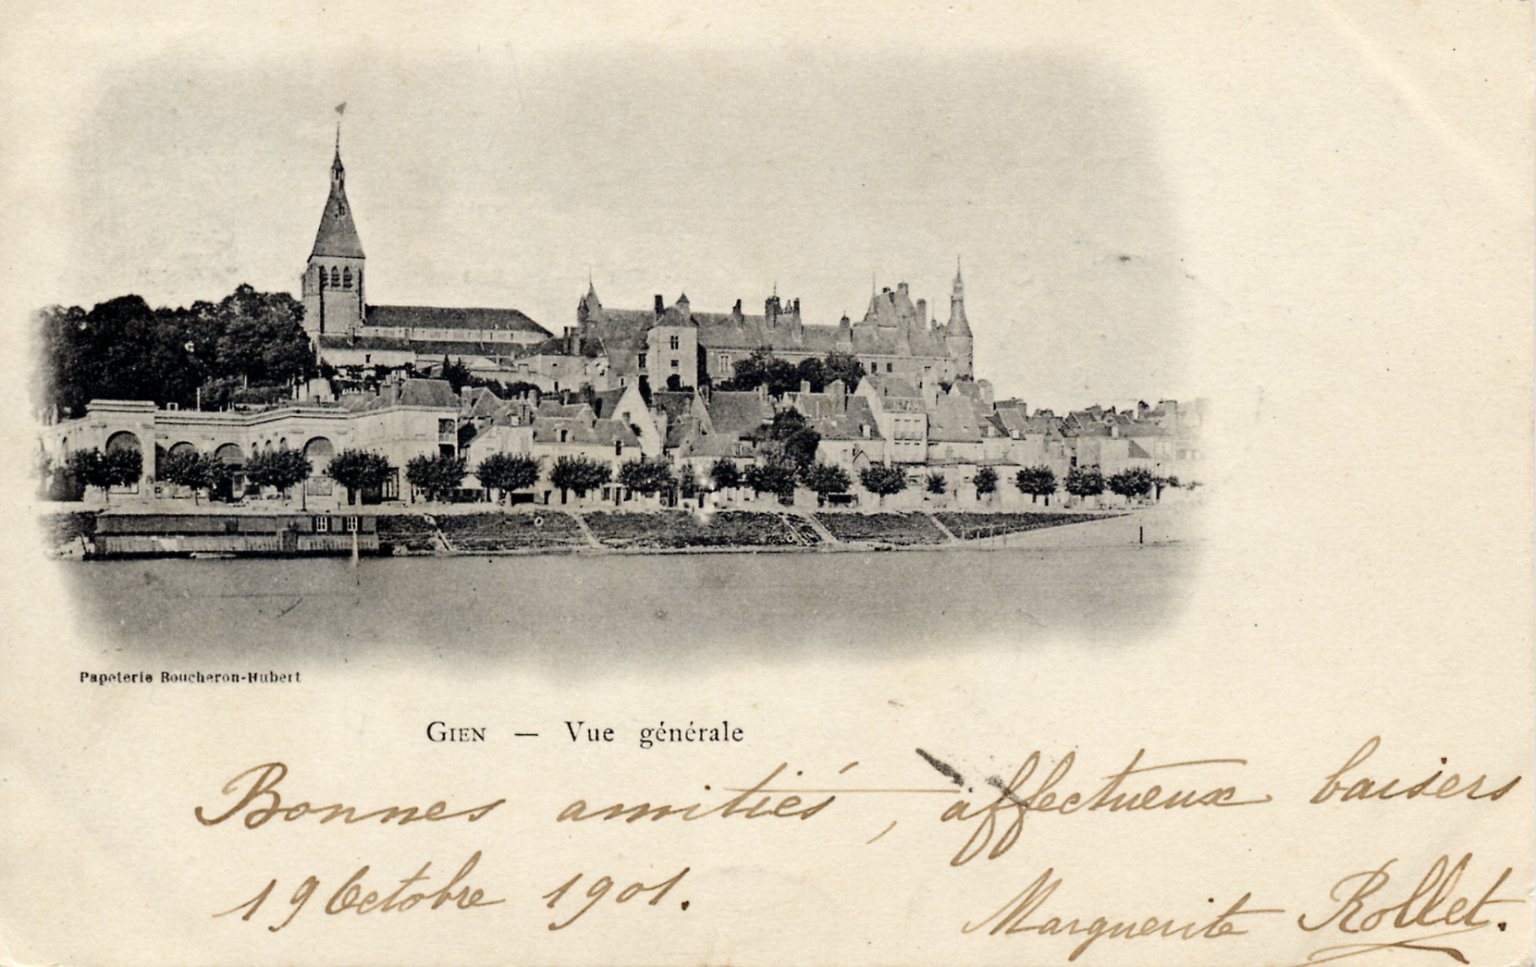 Papeterie Boucheron-Hubert
GIEN — Vue générale
Bonnes amitiés, affectueux baisers
19 Octobre 1901.
Marguerite Rollet.